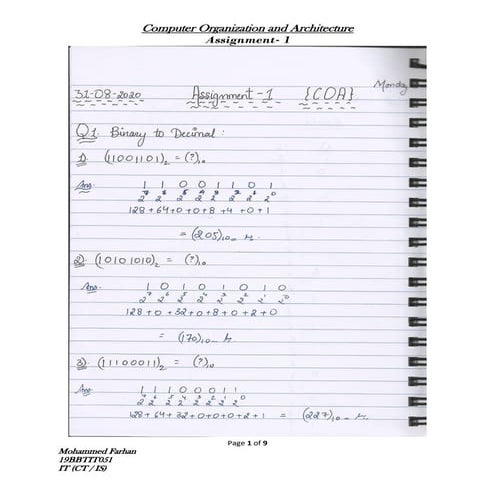 Computer Organization and Architecture
Assignment- 1
Monday
31-08-2020 Assignment-1 {COA}
Q1. Binary to Decimal:
1) (11001101)₂ = (?)₁₀
Ans. 1 1 0 0 1 1 0 1
2⁷ 2⁶ 2⁵ 2⁴ 2³ 2² 2¹ 2⁰
128+64+0+0+8+4+0+1
= (205)₁₀
2) (10101010)₂ = (?)₁₀
Ans. 1 0 1 0 1 0 1 0
2⁷ 2⁶ 2⁵ 2⁴ 2³ 2² 2¹ 2⁰
128+0+32+0+8+0+2+0
= (170)₁₀
3) (11100011)₂ = (?)₁₀
Ans 1 1 1 0 0 0 1 1
2⁷ 2⁶ 2⁵ 2⁴ 2³ 2² 2¹ 2⁰
128+64+32+0+0+0+2+1 = (227)₁₀
Page 1 of 9
Mohammed Farhan
19BBTTT051
IT (CT / IS)